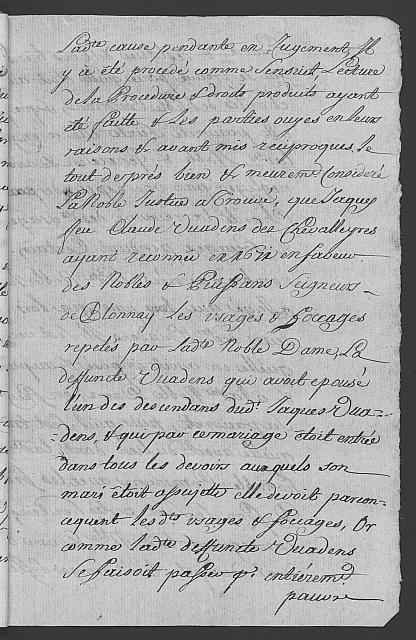 Lad.te cause pendante en Jugement, Il
y à été procedé comme s'ensuit, Lecture
de la Procedure & droits produits ayant
été faitte & Les parties ouyes en leurs
raisons & avant mis reciproques, le
tout de prés bien & meurem.t Consideré
La Noble Justice a trouvé, que Jaques
feu Claude Vuadens des Chevalleyres
ayant reconnu en 1611 en faveur
des Nobles & Puissans Seigneurs
de Blonnay les usages & focages
repetés par Lad.te Noble Dame, La
deffuncte Vuadens qui avoit epousé
l'un des descendans dud.t Jaques Vua-
-dens, & qui par ce mariage étoit entrée
dans tous les devoirs auxquels son
mari étoit assujetti elle devoit parcon-
cequent les d.ts usages & focages, Or
comme lad.te deffuncte Vuadens
se faisoit passer p.r entiérem.t
pauvre